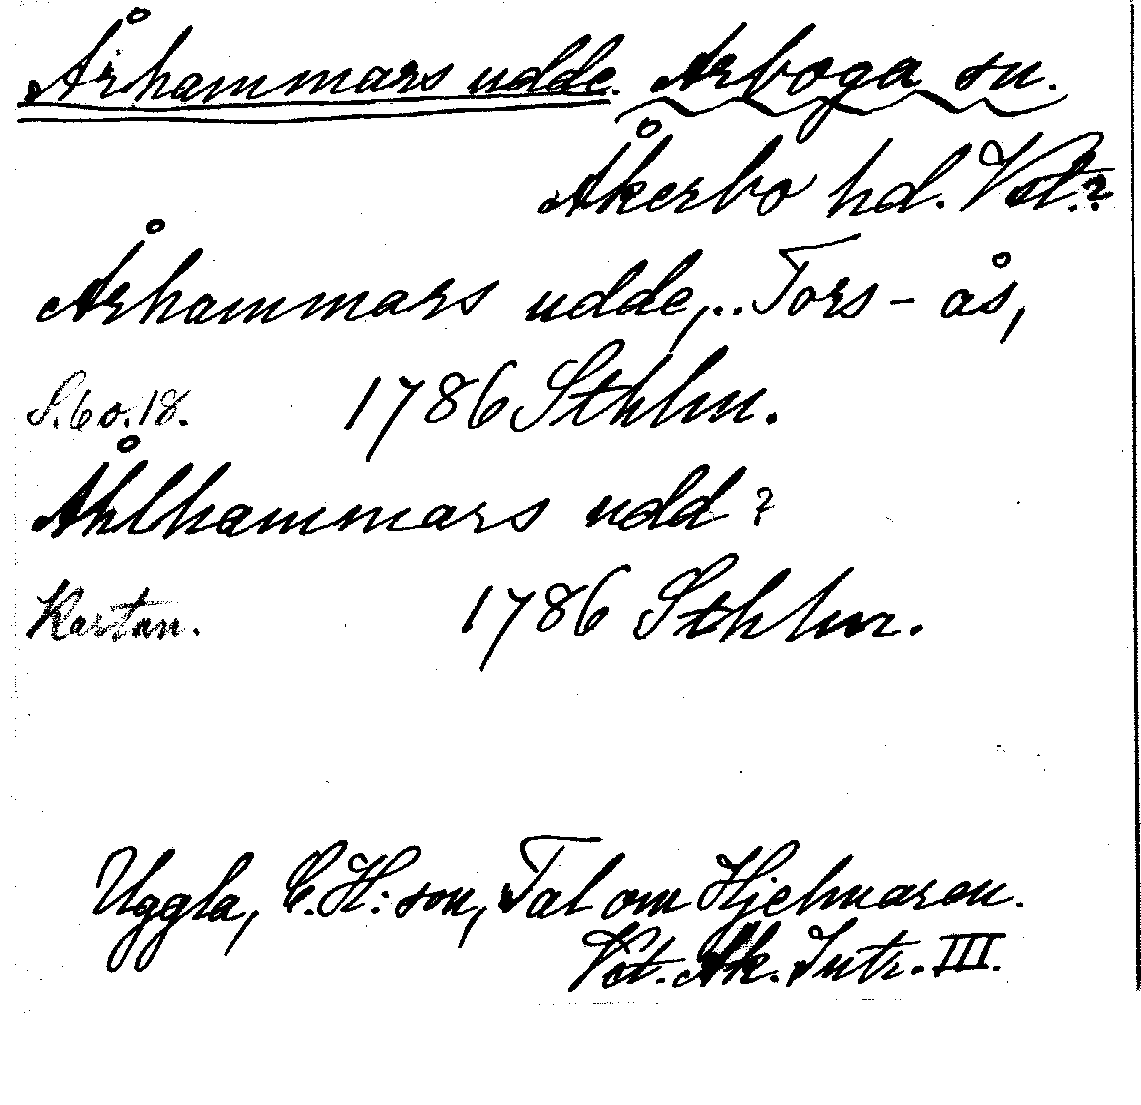 Århammars udde. Arboga sn.
Åkerbo hd. Vstm.?
Århammars udde,.. Tors-ås,
S. 6 o. 18. 1786 Sthlm.
Åhlhammars udd?
Kartan. 1786 Sthlm.
Uggla, C. H:son, Tal om Hjelmaren.
Vet. Ak. Intr. III.